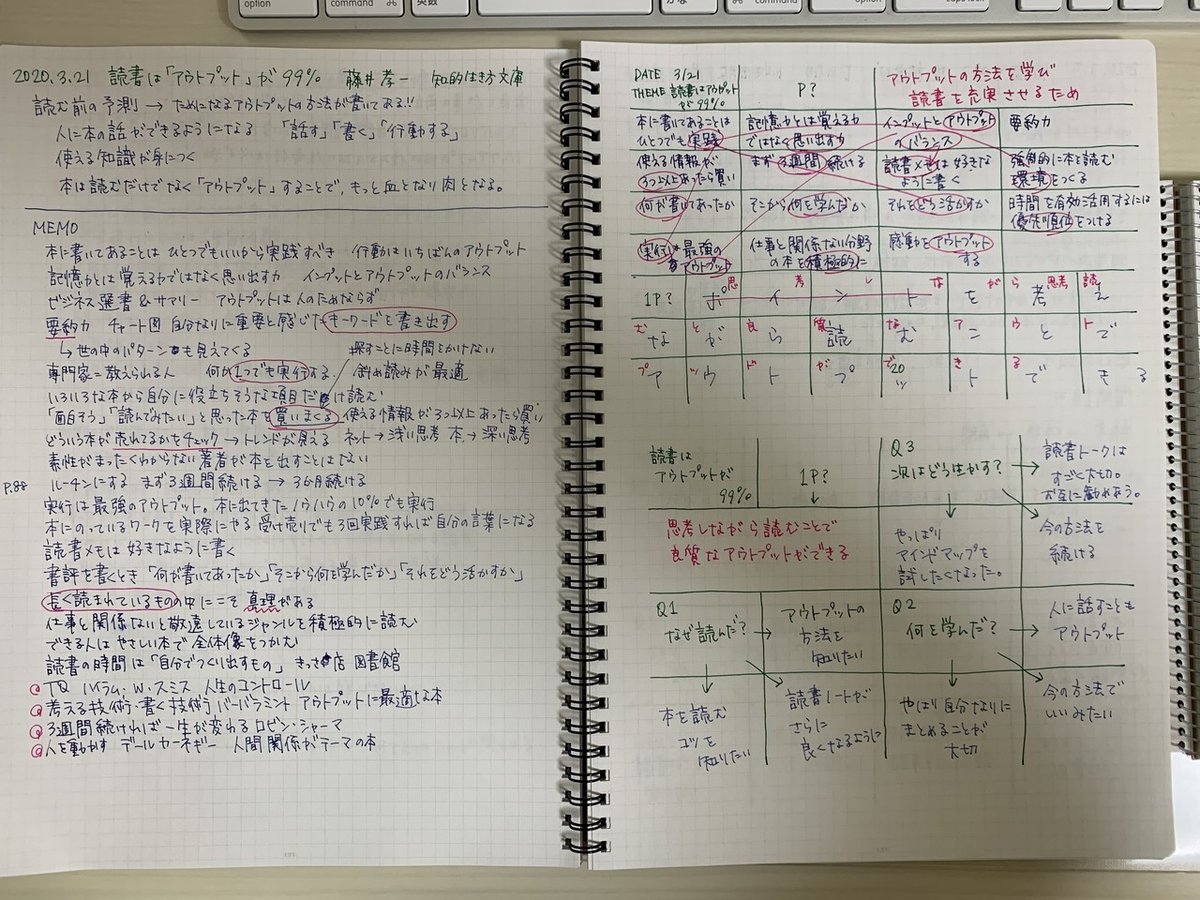 option
command ⌘
英数
かな
⌘ command
option
caps lock
2020.3.21 読書は「アウトプット」が99% 藤井孝一 知的生き方文庫
読む前の予測 → ためになるアウトプットの方法が書いてある!!
人に本の話ができるようになる 「話す」「書く」「行動する」
使える知識が身につく
本は読むだけでなく「アウトプット」することで、もっと血となり肉となる。
MEMO
本に書いてあることは ひとつでもいいから実践すべき 行動はいちばんのアウトプット
記憶力とは覚える力ではなく思い出す力 インプットとアウトプットのバランス
ビジネス選書&サマリー アウトプットは人のためならず
要約力 チャート図 自分なりに重要と感じたキーワードを書き出す
↳世の中のパターンも見えてくる 探すことに時間をかけない
専門家=教えられる人 何か1つでも実行する 斜め読みが最適
いろいろな本から自分に役立ちそうな項目だけ読む
「面白そう」「読んでみたい」と思った本を買いまくる 使える情報が3つ以上あったら買い
どういう本が売れてるかをチェック→トレンドが見える ネット→浅い思考 本→深い思考
素性がまったくわからない著者が本を出すことはない
P.88 ルーチンにする まず3週間続ける → 3か月続ける
実行は最強のアウトプット。本に出てきたノウハウの10%でも実行
本にのっているワークを実際にやる 受け売りでも3回実践すれば自分の言葉になる
読書メモは好きなように書く
書評を書くとき「何が書いてあったか」「そこから何を学んだか」「それをどう活かすか」
長く読まれているものの中にこそ真理がある
仕事と関係ないと敬遠しているジャンルを積極的に読む
できる人は やさしい本で全体像をつかむ
読書の時間は「自分でつくり出すもの」 きっさ店 図書館
TQ ハイラム・W・スミス 人生のコントロール
考える技術・書く技術 バーバラミント アウトプットに最適な本
3週間続ければ一生が変わる ロビン・シャーマ
人を動かす デールカーネギー 人間関係がテーマの本
DATE 3/21
THEME 読書はアウトプットが99%
P?
アウトプットの方法を学び
読書を充実させるため
本に書いてあることは
ひとつでも実践
記憶力とは覚える力
ではなく思い出す力
インプットとアウトプット
のバランス
要約力
使える情報が
3つ以上あったら買い
まず3週間続ける
読書メモは好きな
ように書く
強制的に本を読む
環境をつくる
何が書いてあったか
そこから何を学んだか
それをどう活かすか
時間を有効活用するには
優先順位をつける
実行は最強の
アウトプット
仕事と関係ない分野
の本を積極的に
感動をアウトプット
する
思 考 し な が ら 思考 読
1P? ポ イ ン ト を 考 え
む と 良 質 な ア ウ ト
な が ら 読 む ニ と で
プ が で き る
ア ウ ト プ 20 ッ ト で き る
読書は
アウトプットが
99%
1P?
↓
Q3
次はどう生かす? →
読書トークは
すごく大切。
お互に勧めあう。
思考しながら読むことで
良質なアウトプットができる
やっぱり
マインドマップを
試したくなった。
今の方法を
続ける
Q1
なぜ読んだ? →
アウトプットの
方法を
知りたい
Q2
何を学んだ? →
人に話すことも
アウトプット
本を読む
コツを
知りたい
読書ノートが
さらに
良くなるように
やはり自分なりに
まとめることが
大切
今の方法で
いいみたい